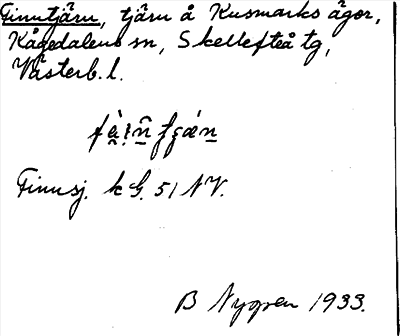 Finntjärn, tjärn å Kusmarks ägor,
Kågedalens sn, Skellefteå tg,
Västerb. l.
Finnsj. kG. 51 NV.
B Nygren 1933.